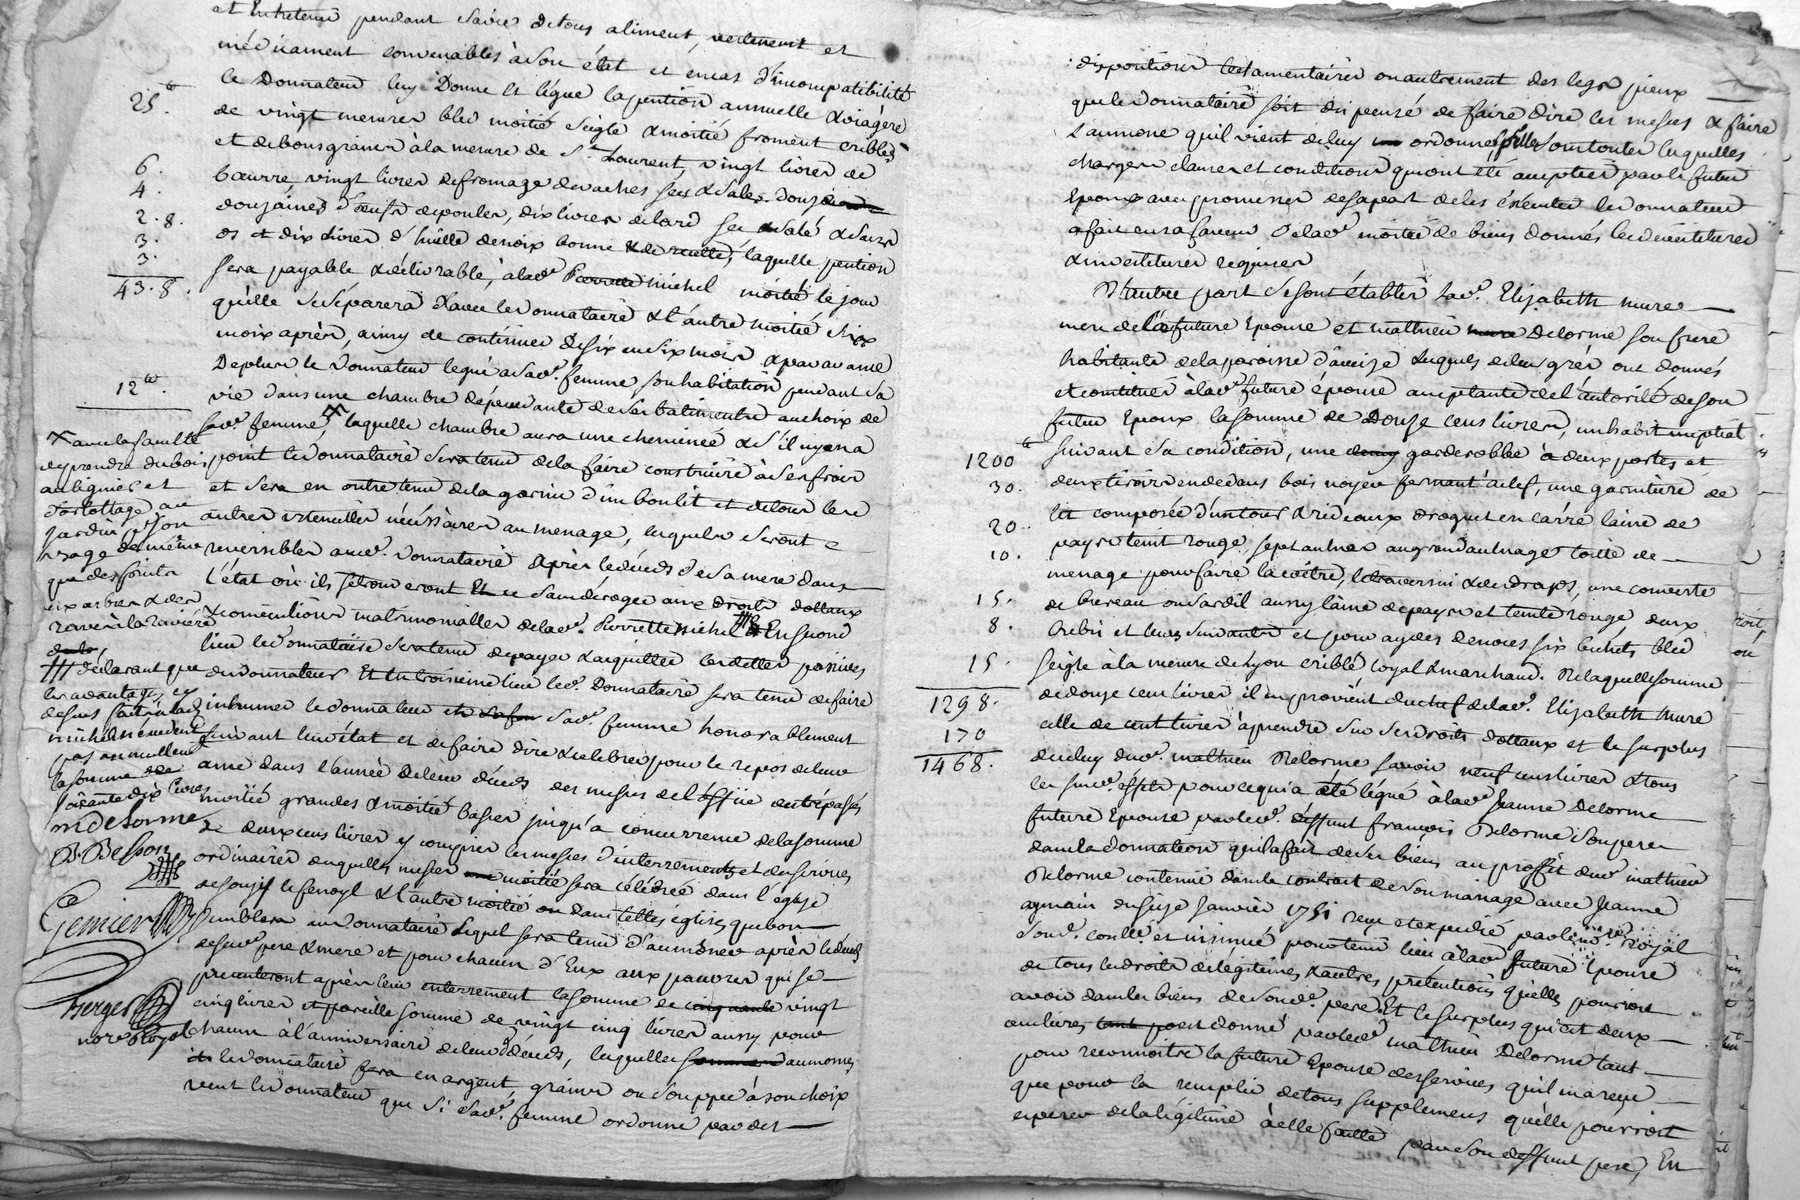 et Entretenir pendant sa vie de tous aliment, vestement et
médicament convenables à son état et en cas d'incompatibilité
le Donnateur luy Donne et légue la pention annuelle & viagère
de vingt mesures bled moitié seigle & moitié froment criblés
et de bons grains à la mesure de St. Laurent, vingt livres de
beurre vingt livres de fromage de vaches sec & salé, douze
douzaines d'oeufs de poules, dix livres de lard sec & salé & sans
os et dix livres d'huille de noix bonne & de recette, laquelle pention
sera payable & délivrable, à lad.e Pierrette michel moitié le jour
qu'elle se séparera d'avec le donnataire & l'autre moitié six
mois après, ainsy de continuer de six en six mois & par avance
De plus le Donnateur legue a sad.e femme son habitation pendant sa
vie dans une chambre dépendante de ses batiments au choix de
sad.e femme, laquelle chambre aura une cheminée & s'il n'y en a
point le donnataire sera tenu de la faire construire à ses frais
et sera en outre tenu de la garnir d'un bon lit et de tous les
autres ustencilles nécéssaires au menage, lesquels seront
reversibles aud. Donnataire Après le décès de sa mere dans
l'état où ils se trouveront Et ce sans déroger aux droits dottaux
& conventions matrimonialles de lad.e Pierrette michel En second
lieu le donnataire sera tenu de payer & acquitter les dettes passives
du donnateur Et En troisieme lieu led. Donnataire sera tenu de faire
inhumer le donnateur et sad.e femme honorablement
suivant leur état et de faire dire & celebrer pour le repos de leur
ame dans l'année de leur décès des messes de l'office des trépassés
moitié grandes & moitié basses jusqu'à concurrence de la somme
de deux cens livres y compris les messes d'interrements et de services
ordinaires desquelles messes moitié sera célébrée dans l'église
de Souzy & l'autre moitié dans telles églises que bon
semblera au Donnataire Lequel sera tenu d'aumôner après le décès
de sesd. pere & mere et pour chacun d'Eux aux pauvres qui se
presenteront après leur enterrement la somme de cinquante vingt
cinq livres et pareille somme de vingt cinq livres aussy pour
chacun à l'anniversaire de leur décès, lesquelles aumones
le donnataire fera en argent, grains ou souppe à son choix
veut le donnateur que si sad.e femme ordonne par des
25 tt.
6.
4.
2.8.
3.
3.
43.8.
12 tt.
avec la faculté
de prendre du bois
au bucher et
jardin pr. son
usage de même
que des fruits
aux arbres & des
raves à la ravière
déclarant que
les avantages cy
dessus faits à lad.
michel n'excedent
pas annuellement
la somme de
soixante dix livres
m delorme
B. Besson
Genier
Berger
not.e Royal
dispositions testamentaires ou autrement des legs pieux
que le donnataire soit dispensé de faire dire les messes & faire
l'aumone qu'il vient de luy ordonner sont toutes lesquelles
charges clauses et conditions qui ont été acceptées par le futur
Epoux avec promesses de sa part de les éxécuter le donnateur
a fait en sa faveur de lad.e moitié de biens donnés les devestitures
& investitures requises
D'autre part se sont établis lad.e Elizabeth mure
mere de la future Epouse et mathieu Delorme son frere
habitants de la paroisse d'aveize lesquels de leur gré ont donnés
et constitués à lad.e future épouse acceptante de l'autorité de son
futur Epoux la somme de Douze cens livres, un habit nuptial
suivant sa condition, une garderobbe à deux portes et
deux tiroirs en dedans bois noyer fermant à clef, une garniture de
lit composée d'un tour & rideaux droguet en carré laine de
pays teint rouge, sept aulnes au grand aulnage toile de
menage pour faire la coëtre, le traversin & des draps, une couverte
de bureau ou sardil aussy laine de pays et teinte rouge, deux
brebis et leurs suivants et pour ayder de noces six bichets bled
seigle à la mesure de Lyon criblé loyal & marchand. De laquelle somme
de douze cens livres il en provient du chef de lad.e Elizabeth Mure
celle de cent livres à prendre sur ses droits dottaux et le surplus
de celuy dud. mathieu Delorme savoir neuf cens livres & tous
les susd. effets pour ce qui a été légué à lad.e Jeanne Delorme
future Epouse par led. deffunt françois Delorme son pere
dans la donnation qu'il a fait de ses biens au proffit dud. mathieu
Delorme contenue dans le contrat de son mariage avec Jeanne
aymain du seize Janvier 1751 reçu et expedié par le nre. royal
soud. conlle. et insinué pour tenir lieu à lad.e future Epouse
de tous les droits de légitimes, & autres prétentions qu'elle pourroit
avoir dans les biens de sond. pere, Et le surplus qui est deux
cens livres est donné par led. mathieu Delorme tant
pour reconnoitre la future Epouse des services qu'il en a reçu
que pour la remplir de tous supplements qu'elle pourroit
esperer de la légitime à elle faitte par son deffunt pere, En
1200 tt
30.
20.
10.
15.
8.
15.
1298.
170
1468.